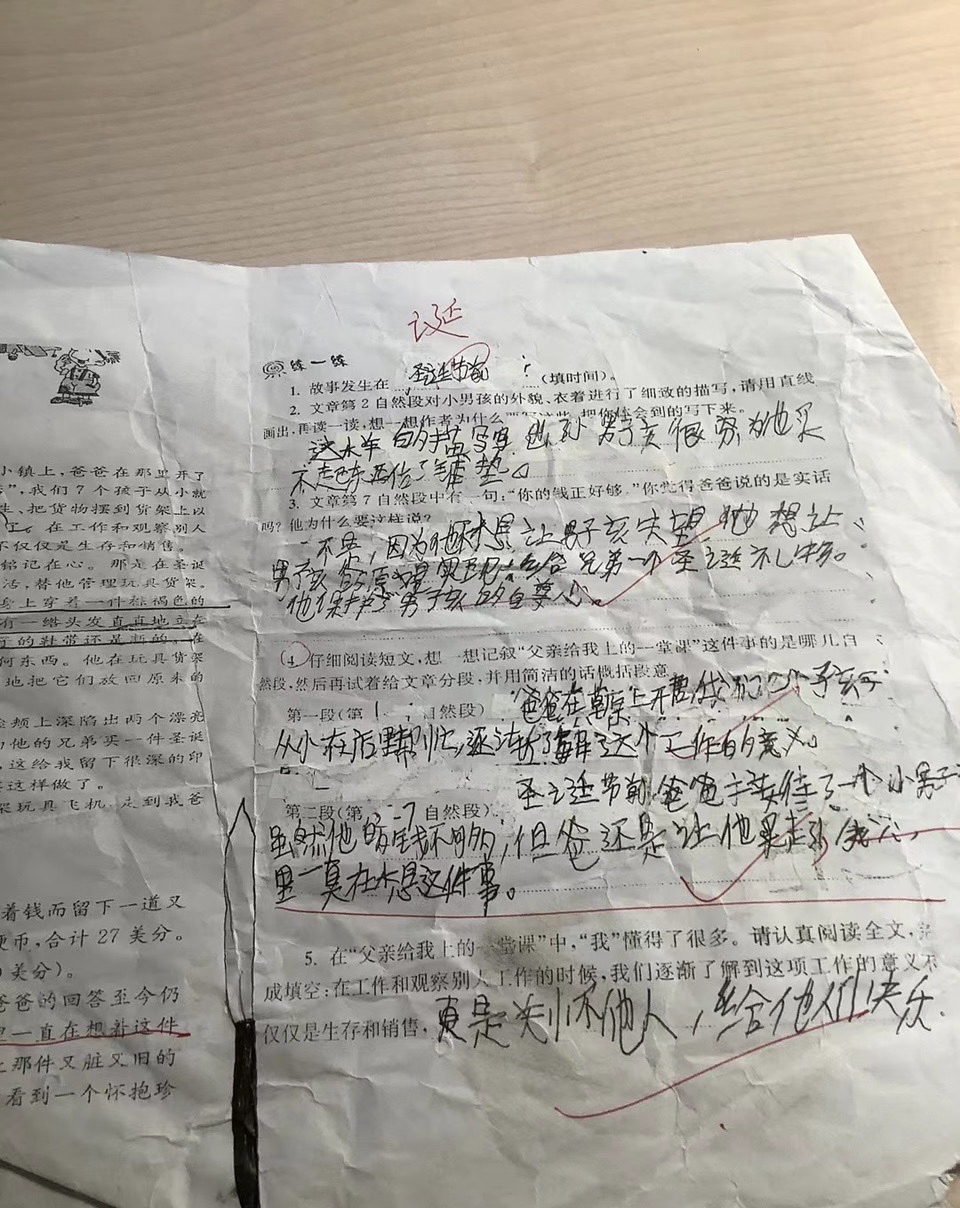 诞
小镇上，爸爸在那里开了
我们7个孩子从小就
把货物摆到货架上以
在工作和观察别人
不仅仅是生存和销售。
锦记在心。那是在圣诞
活，替他管理玩具货架。
上穿着一件棕褐色的
有一绺头发直直地立在
的鞋带还是断的，在
何东西。他在玩具货架
地把它们放回原来的
脸颊上深陷出两个漂亮
他的兄弟买一件圣诞
这给我留下很深的印
这样做了。
架玩具飞机，走到我爸
着钱而留下一道又
硬币，合计27美分。
美分）。
爸爸的回答至今仍
一直在想着这件
那件又脏又旧的
看到一个怀抱珍
练一练
1. 故事发生在 圣诞节前 （填时间）。
2. 文章第2自然段对小男孩的外貌、衣着进行了细致的描写，请用直线
画出，再读一读，想一想作者为什么 把你体会到的写下来。
这水羊 描写 男孩很穷 为他买
不起东西作了铺垫。
3. 文章第7自然段中有 句：“你的钱正好够。”你觉得爸爸说的是实话
吗？他为什么要这样说？
不是，因为他不想让男孩失望，他想让
男孩 愿望实现 给兄弟一个圣诞礼物。
他保护了男孩的自尊心。
4. 仔细阅读短文，想一想记叙“父亲给我上的一堂课”这件事的是哪几自
然段，然后再试着给文章分段，并用简洁的话概括段意。
第一段（第 1 自然段） 爸爸在 上开 我们 个孩子
从小在店帮忙，逐渐了解了这个工作的意义。
圣诞节前，爸爸 接待了一个小男孩
第二段（第 -7 自然段）
虽然他的钱不够，但爸还是让他买走
里一真在想这件事。
5. 在“父亲给我上的一堂课”中，“我”懂得了很多。请认真阅读全文，
成填空：在工作和观察别人工作的时候，我们逐渐了解到这项工作的意义不
仅仅是生存和销售， 更是关怀他人，给他们快乐.